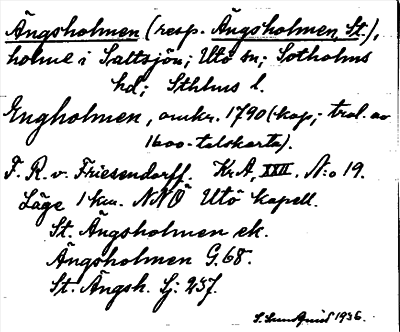 Ängsholmen (resp. Ängsholmen, St.),
holme i Saltsjön; Utö sn; Sotholms
hd; Sthlms l.
Engholmen, omkr. 1790 (kop; trol. av
1600-talskarta).
F. R. v. Friesendorff. Kr.A. XXII. N:o 19.
Läge 1 km. NNÖ Utö kapell.
St. Ängsholmen ek.
Ängsholmen G. 68.
St. Ängsh. Sj: 237.
S. Lundquist 1936.